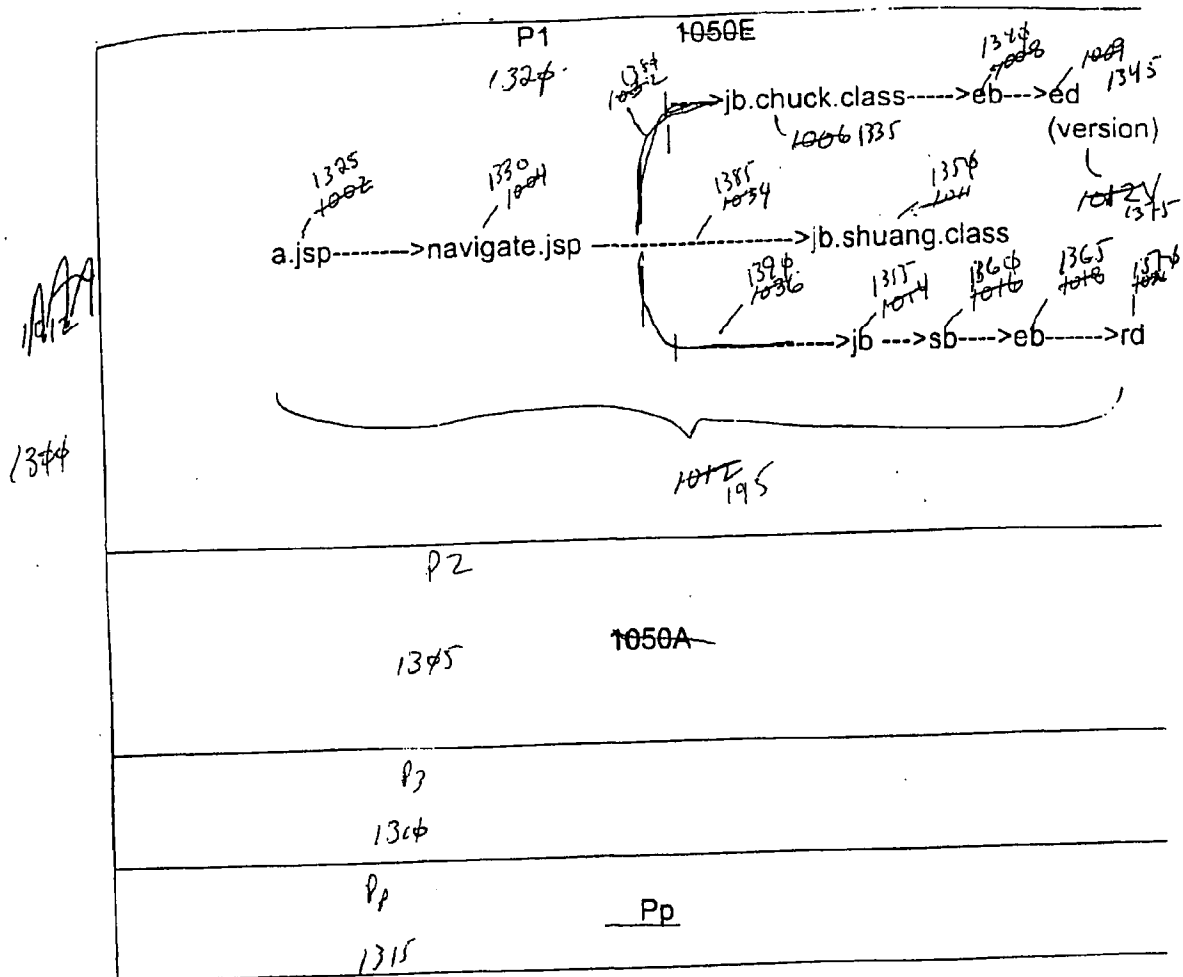 P1 1050E
1320
1380
1032
jb.chuck.class----->eb--->ed
1340
1008
1009
1345
(version)
1006 1335
1325
1002
1330
1004
1385
1034
1350
1012
1375
a.jsp------->navigate.jsp ---------------------->jb.shuang.class
1390
1036
1014
1360
1016
1365
1018
------>jb --->sb---->eb------>rd
1300
1012
195
P2
1305
1050A
P3
1310
Pp
Pp
1315